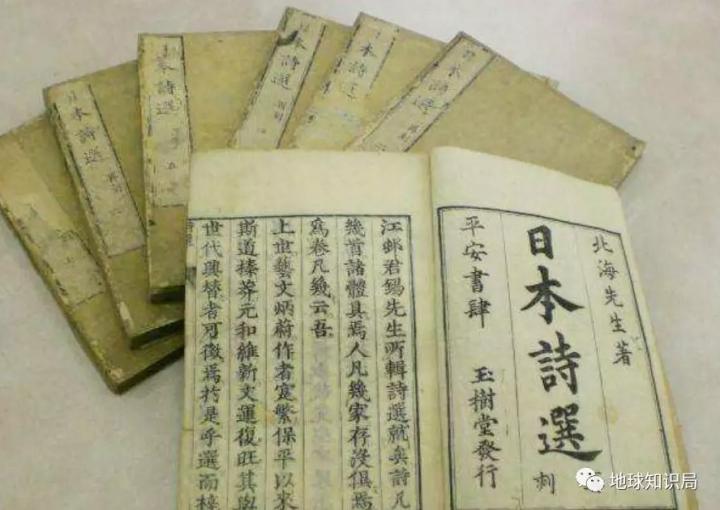 日本詩選
本詩選
日本詩選
本詩選
日本詩選
北海先生著
日本詩選
平安書肆 玉樹堂發行
江邨君錫先生所輯詩選就矣詩凡
幾首諸體具焉人凡幾家存没俱焉
爲卷凡幾云吾
上世藝文炳蔚作者寔繁保平以来
斯道榛莽元和維新文運復旺其與
世代興替者可徵焉於是乎選而梓
地球知识局